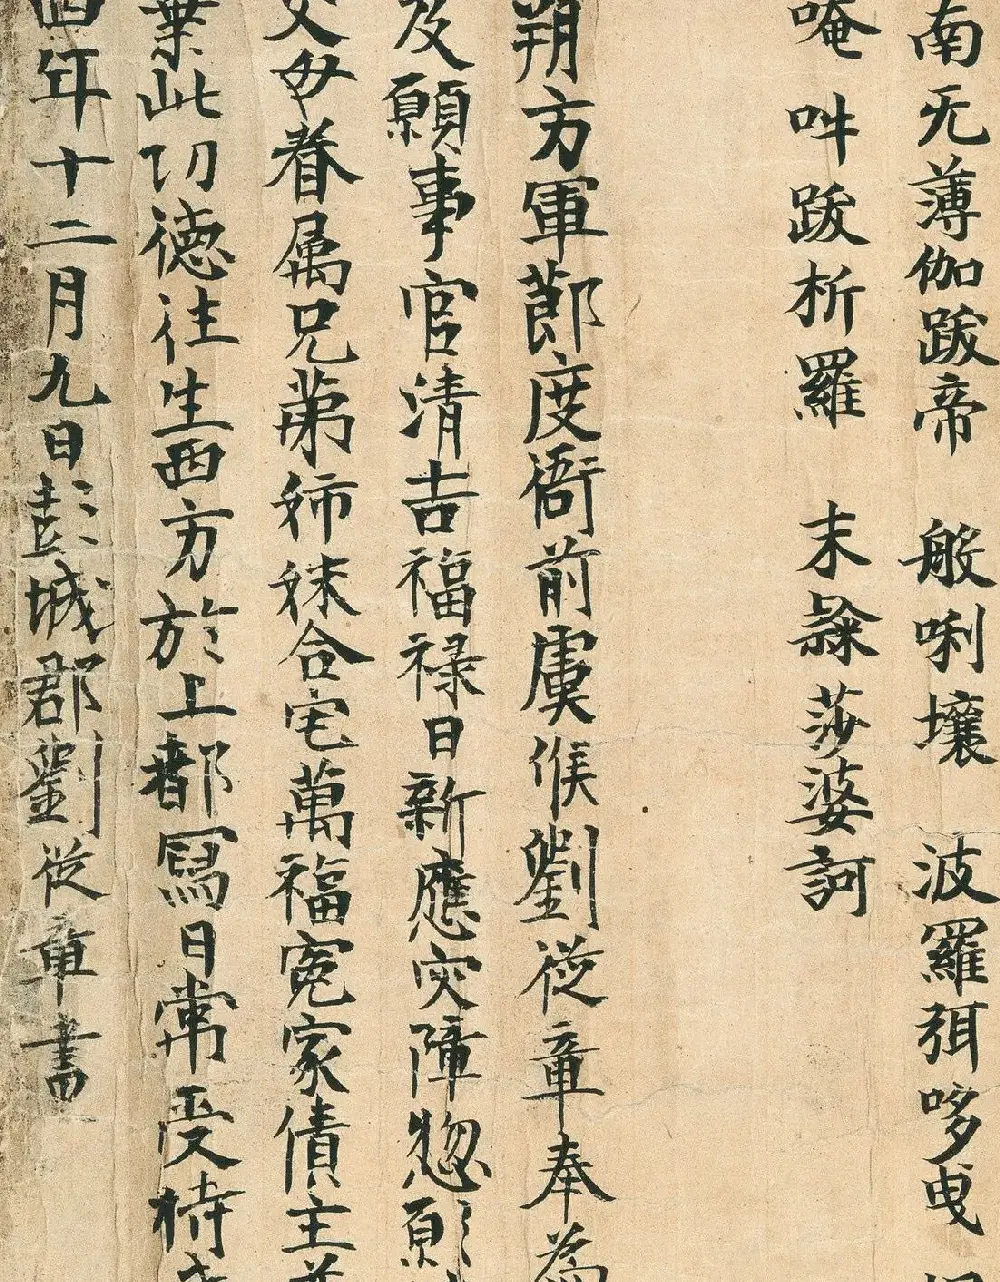 南无薄伽跋帝 般唎壤 波羅弭哆曳
唵 吽 跋析羅 末 莎婆訶
朔方軍節度衙前虞候劉從章奉為
及願事官清吉福祿日新應灾障惣願
父母眷属兄弟姉妹合宅萬福寃家債主
業此功德往生西方於上都寫日常受持
四年十二月九日彭城郡劉從章書